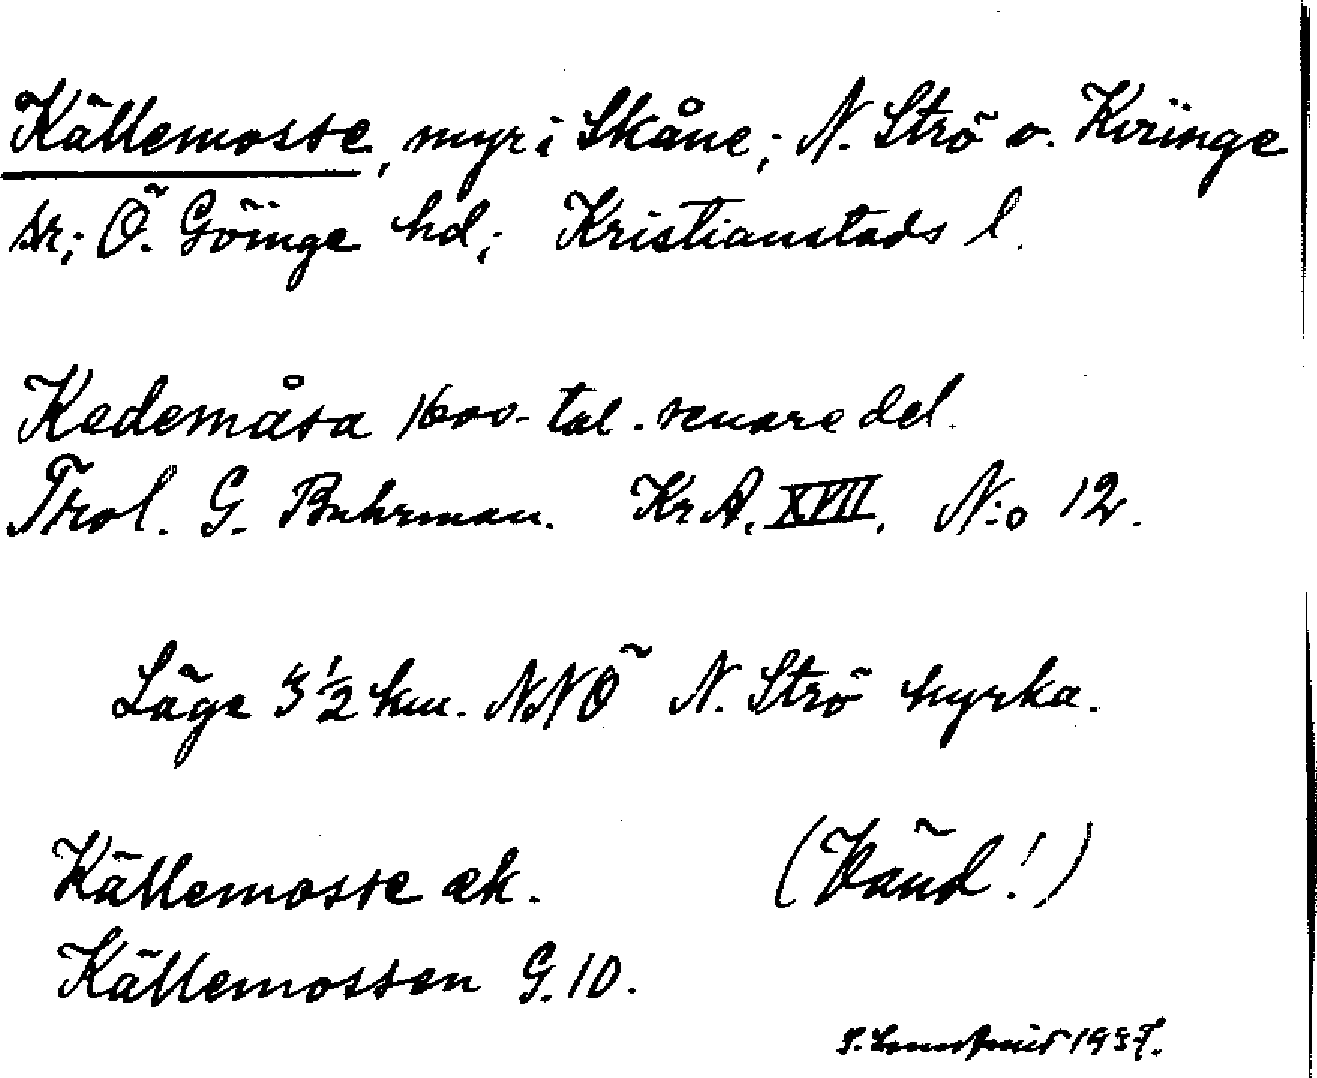 Källemosse, myr i Skåne; N. Strö o. Kviinge
sr; Ö. Göinge hd; Kristianstads l.
Kedemåsa 1600-tal. senare del.
Trol. G. Buhrman. Kr A. XVII. N:o 12.
Läge 3 1/2 km. NNÖ N. Strö kyrka.
Källemosse ek. (Vänd!)
Källemossen G. 10.
1937.